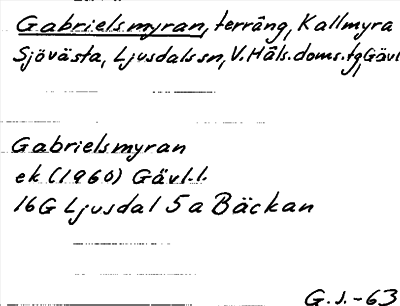 Gabrielsmyran, terräng, Kallmyra
Sjövästa, Ljusdals sn, V. Häls. doms. tg, Gävl
Gabrielsmyran
ek (1960) Gävl.l.
16G Ljusdal 5a Bäckan
G.J.-63